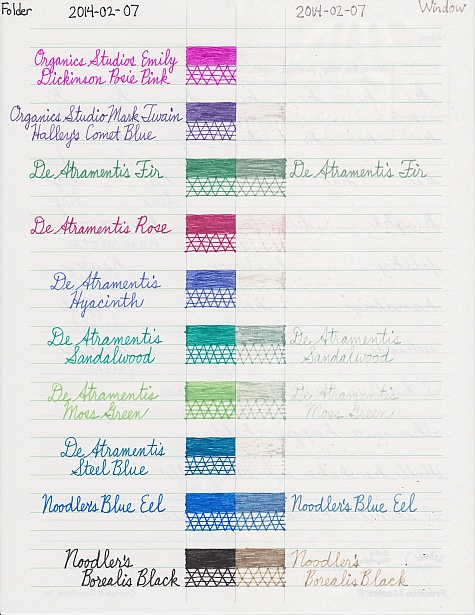 Folder 2014-02-07 2014-02-07 Window
Organics Studios Emily
Dickinson Posie Pink
Organics Studio Mark Twain
Halley's Comet Blue
De Atramentis Fir De Atramentis Fir
De Atramentis Rose
De Atramentis
Hyacinth
De Atramentis De Atramentis
Sandalwood Sandalwood
De Atramentis De Atramentis
Moss Green Moss Green
De Atramentis
Steel Blue
Noodler's Blue Eel Noodler's Blue Eel
Noodler's Noodler's
Borealis Black Borealis Black